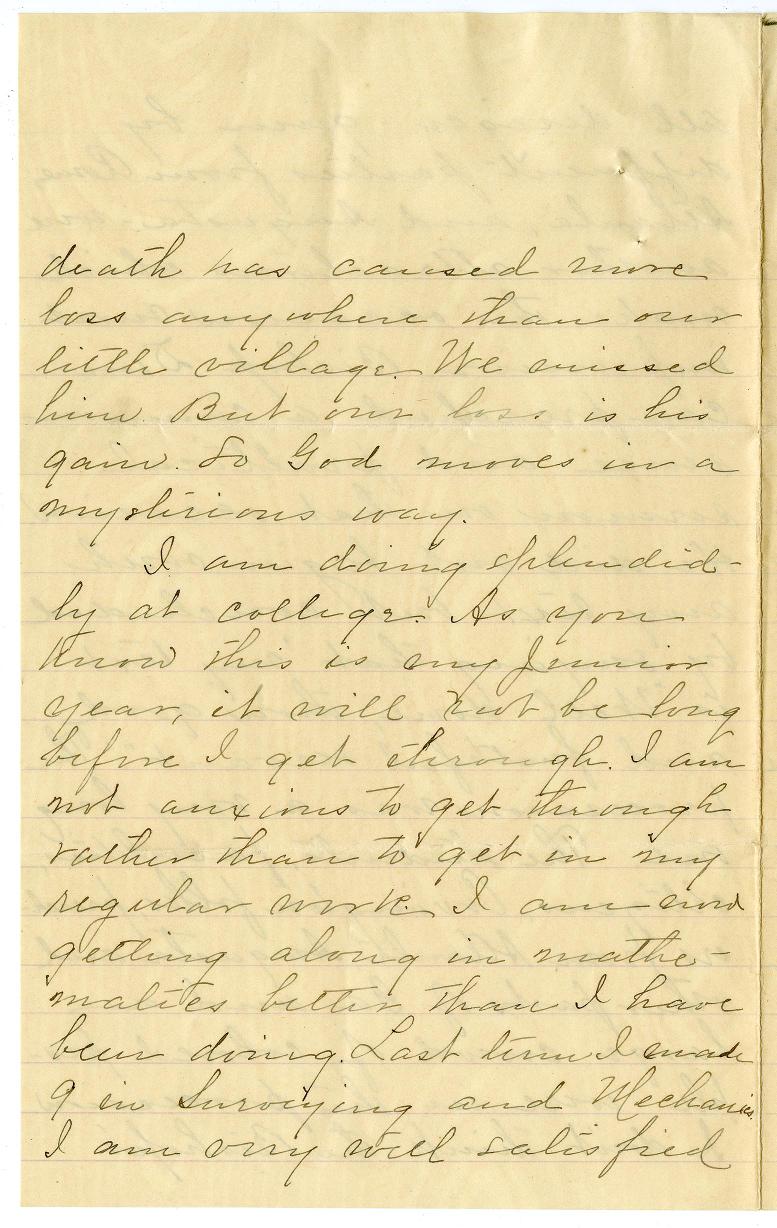 death has caused more
loss anywhere than our
little village. We missed
him. But our loss is his
gain. So God moves in a
mystirious way.
I am doing splendid-
ly at college. As you
know this is my Junior
year, it will not be long
before I get through. I am
not anxious to get through
rather than to get in my
regular work. I am now
getting along in mathe-
matics better than I have
been doing. Last term I made
9 in Surveying and Mechanics.
I am very well satisfied